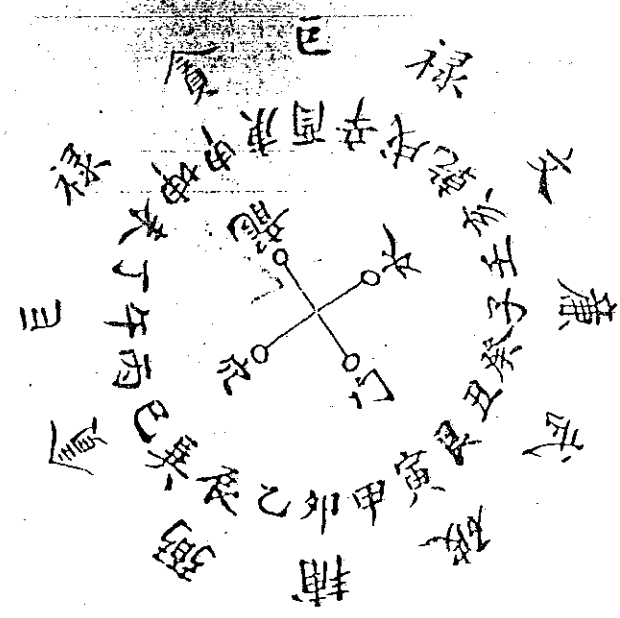 巨 禄 文 廉 武 破 輔 弼 貪 巨 禄 貪
壬 子 癸 丑 艮 寅 甲 卯 乙 辰 巽 巳 丙 午 丁 未 坤 申 庚 酉 辛 戌 乾 亥
龍 水